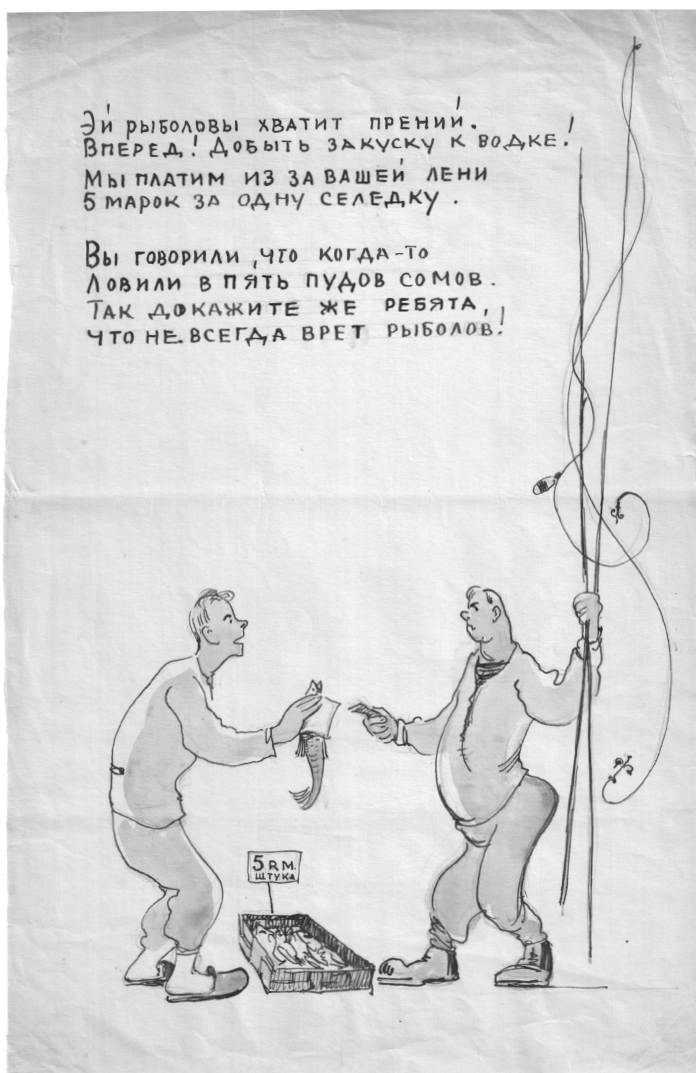 Эй рыболовы хватит прений.
Вперед! Добыть закуску к водке!
Мы платим из за вашей лени
5 марок за одну селедку.
Вы говорили, что когда-то
ловили в пять пудов сомов.
Так докажите же ребята,
что не всегда врет рыболов!
5 R.M.
ШТУКА